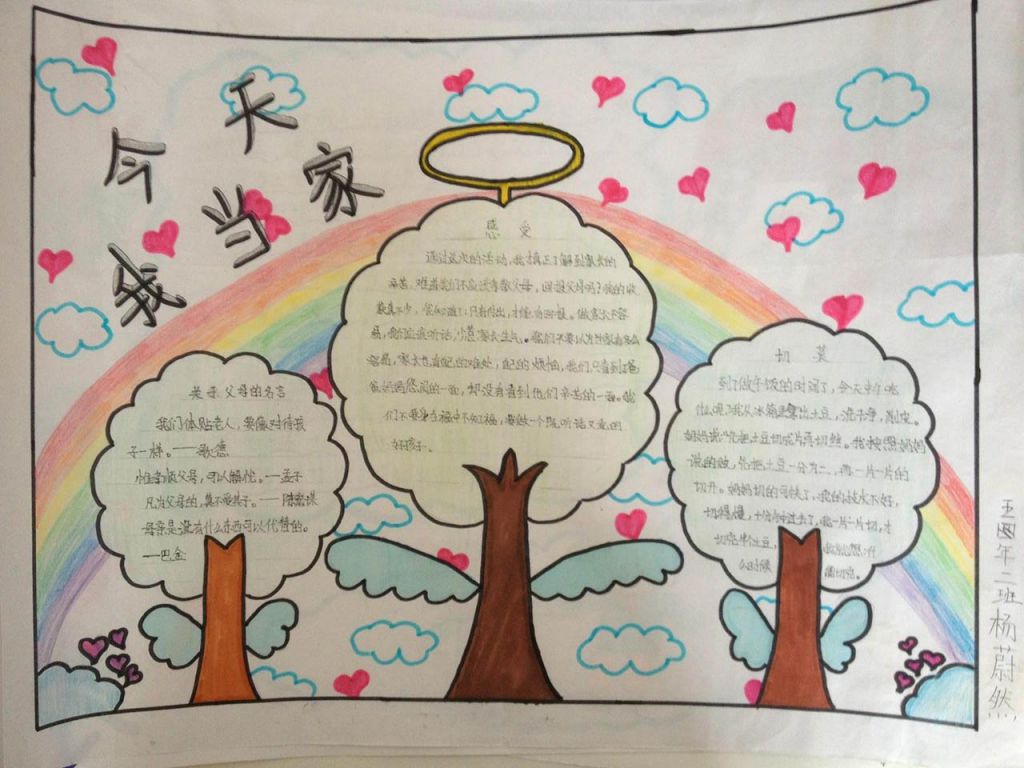 今天
我当家
感受
通过这次的活动，我真正了解到家长的
辛苦，难道我们不应该孝敬父母，回报父母吗？我的收
获真不少，
只有付出，才能有回报。做家长不容
易，我们应该听话，少惹家长生气。我们不要以为当家有多么
容易，家长也有自己的难处，自己的烦恼，我们只看到了爸
爸妈妈悠闲的一面，却没有看到他们辛苦的一面。我
们不要身在福中不知福，要做一个既听话又乖的
好孩子。
关于父母的名言
我们体贴老人，要像对待孩
子一样。——歌德
惟孝顺父母，可以解忧。——孟子
凡为父母的，莫不爱其子。——陈宏谋
母亲是没有什么东西可以代替的。
——巴金
切菜
到了做午饭的时间了，今天中午吃
什么呢？我从冰箱里拿出土豆，洗干净，削皮。
妈妈说：先把土豆切成片再切丝。我按照妈妈
说的做，先把土豆一分为二，再一片一片的
切开。妈妈切的可快了，我的技术不好，
切得慢，十分钟过去了，我一片一片切，才
切完半个土豆，
么时候
五年二班杨蔚然